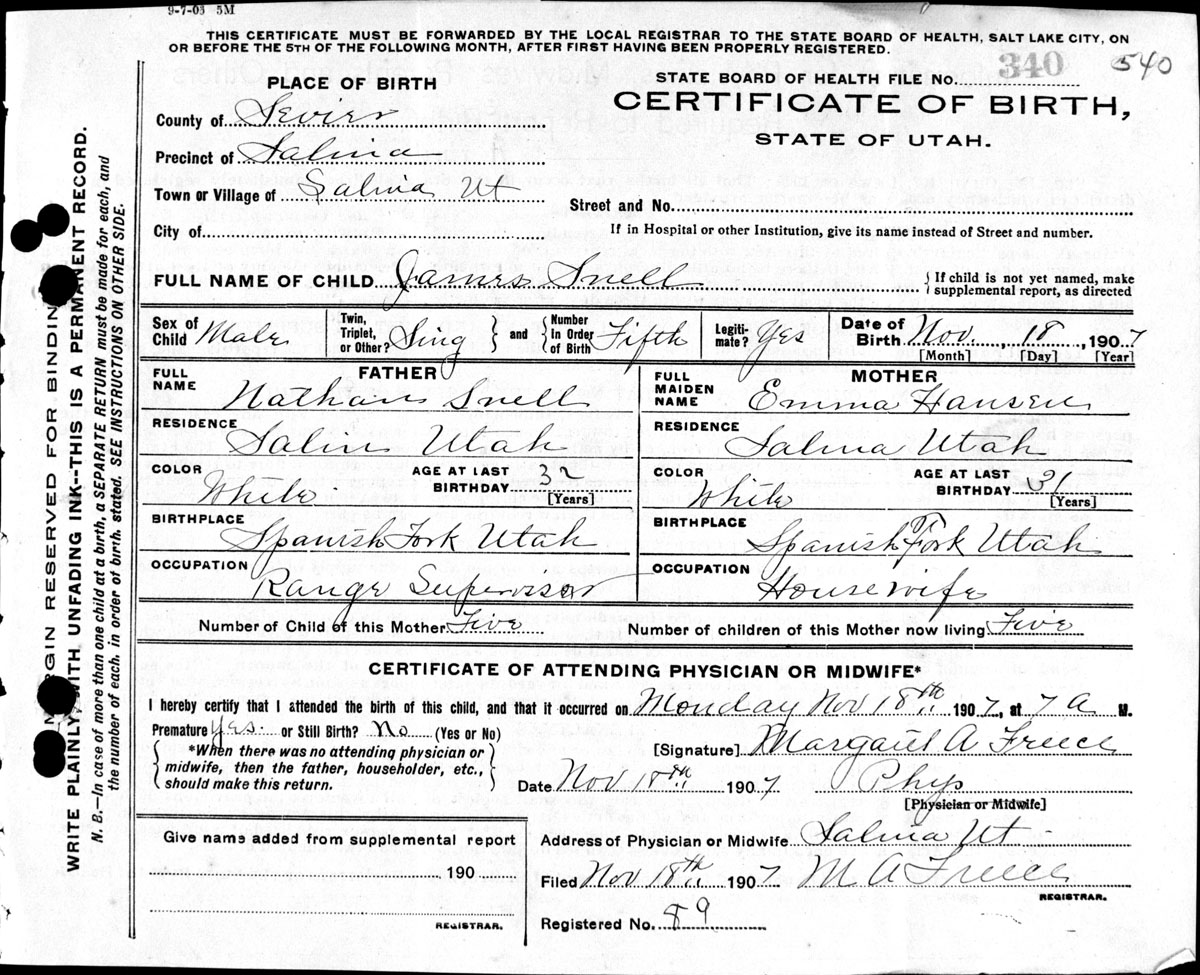 9-7-03 5M
THIS CERTIFICATE MUST BE FORWARDED BY THE LOCAL REGISTRAR TO THE STATE BOARD OF HEALTH, SALT LAKE CITY, ON
OR BEFORE THE 5TH OF THE FOLLOWING MONTH, AFTER FIRST HAVING BEEN PROPERLY REGISTERED.
STATE BOARD OF HEALTH FILE No. 340 540
CERTIFICATE OF BIRTH,
STATE OF UTAH.
PLACE OF BIRTH
County of Sevier
Precinct of Salina
Town or Village of Salina Ut
City of
Street and No.
If in Hospital or other Institution, give its name instead of Street and number.
FULL NAME OF CHILD James Snell
{ If child is not yet named, make
supplemental report, as directed
Sex of Child Male
Twin, Triplet, or Other? Sing } and { Number In Order of Birth Fifth
Legitimate? Yes
Date of Birth Nov. 18, 1907
[Month] [Day] [Year]
FATHER
FULL NAME Nathan Snell
RESIDENCE Salin Utah
COLOR White
AGE AT LAST BIRTHDAY 32 [Years]
BIRTHPLACE Spanish Fork Utah
OCCUPATION Range Supervisor
MOTHER
FULL MAIDEN NAME Emma Hansen
RESIDENCE Salina Utah
COLOR White
AGE AT LAST BIRTHDAY 31 [Years]
BIRTHPLACE Spanish Fork Utah
OCCUPATION Housewife
Number of Child of this Mother Five
Number of children of this Mother now living Five
CERTIFICATE OF ATTENDING PHYSICIAN OR MIDWIFE*
I hereby certify that I attended the birth of this child, and that it occurred on Monday Nov 18th 1907, at 7 A M.
Premature Yes. or Still Birth? No (Yes or No)
{ *When there was no attending physician or
midwife, then the father, householder, etc.,
should make this return. }
[Signature] Margaret A Freece
Date Nov 18th 1907 Phys
[Physician or Midwife]
Give name added from supplemental report
190
REGISTRAR.
Address of Physician or Midwife Salina Ut
Filed Nov 18th 1907 M A Freece
REGISTRAR.
Registered No. 89
MARGIN RESERVED FOR BINDING
WRITE PLAINLY WITH UNFADING INK--THIS IS A PERMANENT RECORD.
N. B.—In case of more than one child at a birth, a SEPARATE RETURN must be made for each, and
the number of each, in order of birth, stated. SEE INSTRUCTIONS ON OTHER SIDE.